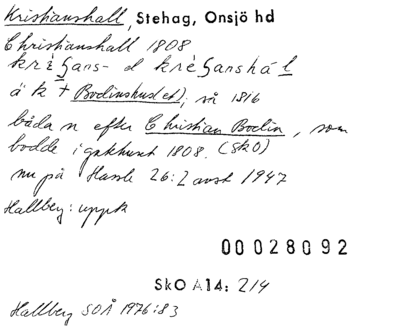 Kristianshall, Stehag, Onsjö hd
Christianshall 1808
krèʃans- d krèʃanshál
å k + Bodinshuset), så 1816
båda n efter Christian Bodin, som
bodde i gathuset 1808. (SkO)
nu på Hassle 26:2 avst 1947
Hallberg: uppk
00028092
SkO A14: 214
Hallberg SOÅ 1976:83